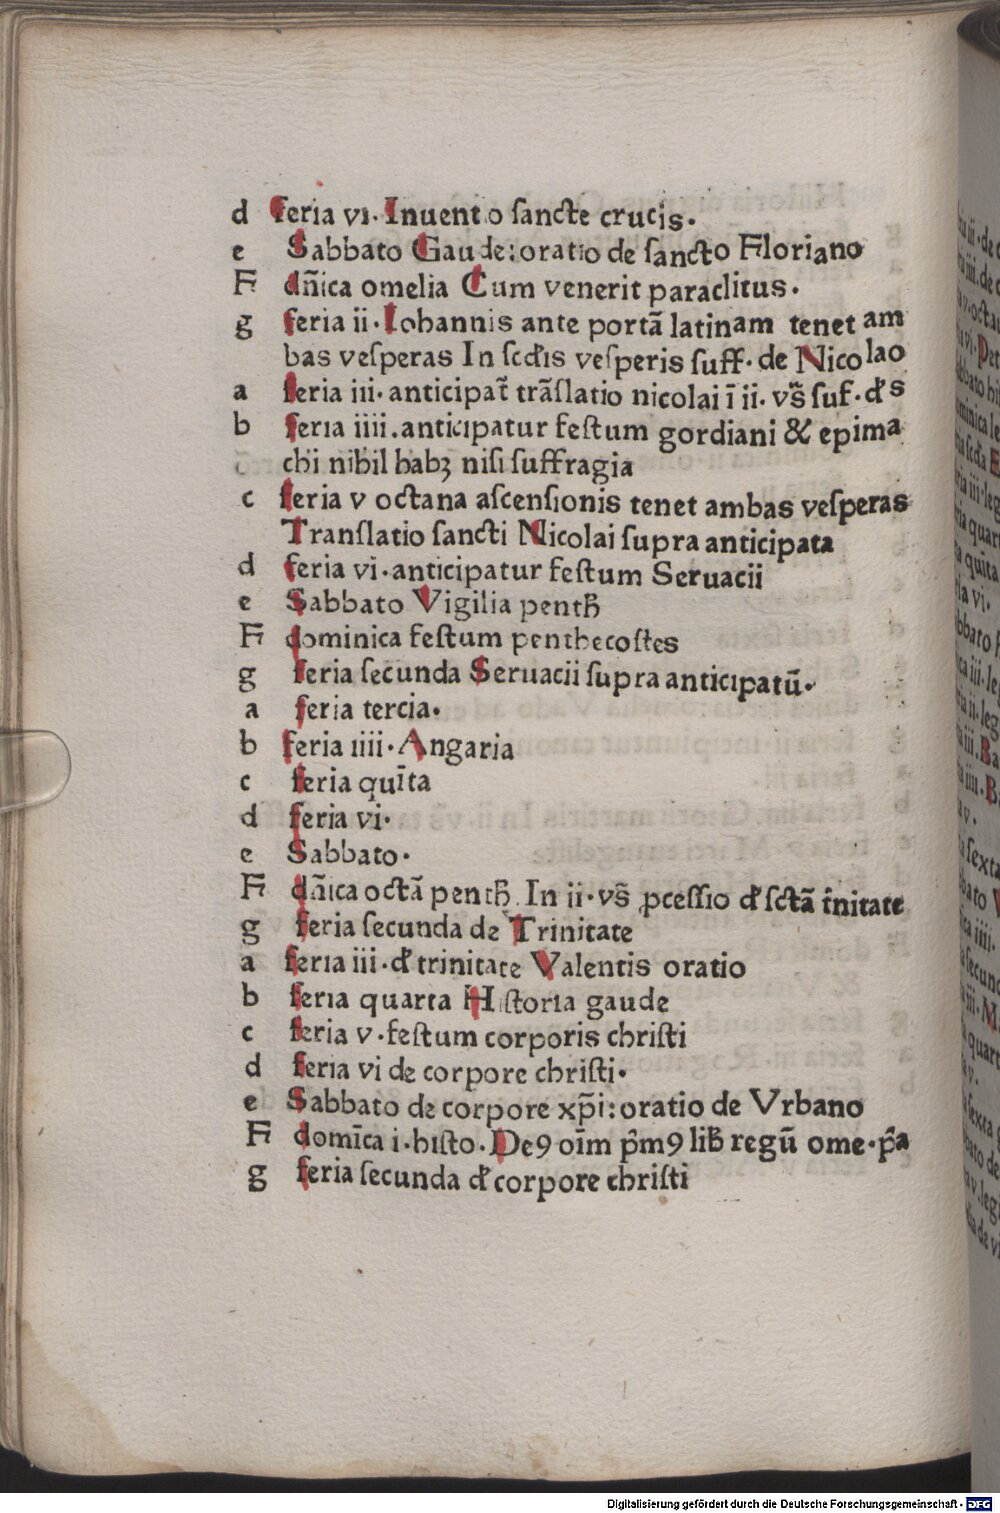 d feria vi. Inuentio sancte crucis.
e Sabbato Gaude: oratio de sancto Floriano
F dñica omelia Cum venerit paraclitus.
g feria ii. Iohannis ante portã latinam tenet am
bas vesperas In scd̄is vesperis suff. de Nicolao
a feria iii. anticipat̃ trãslatio nicolai ī ii. vs̃ suf. d̕ s
b feria iiii. anticipatur festum gordiani & epima
chi nihil habꝫ nisi suffragia
c feria v octana ascensionis tenet ambas vesperas
Translatio sancti Nicolai supra anticipata
d feria vi. anticipatur festum Seruacii
e Sabbato Vigilia penth̄
F dominica festum penthecostes
g feria secunda Seruacii supra anticipatũ.
a feria tercia.
b feria iiii. Angaria
c feria quīta
d feria vi.
e Sabbato.
F dñica octã penth̄ In ii. vs̃ ꝓcessio d̕ sctã t̃initate
g feria secunda de Trinitate
a feria iii. d̕ trinitate Valentis oratio
b feria quarta Historia gaude
c feria v. festum corporis christi
d feria vi de corpore christi.
e Sabbato de corpore xp̄i: oratio de Vrbano
F domīca i. histo. Deꝯ oīm p̃mꝯ lib̃ regũ ome. p̃a
g feria secunda d̕ corpore christi
Digitalisierung gefördert durch die Deutsche Forschungsgemeinschaft - DFG